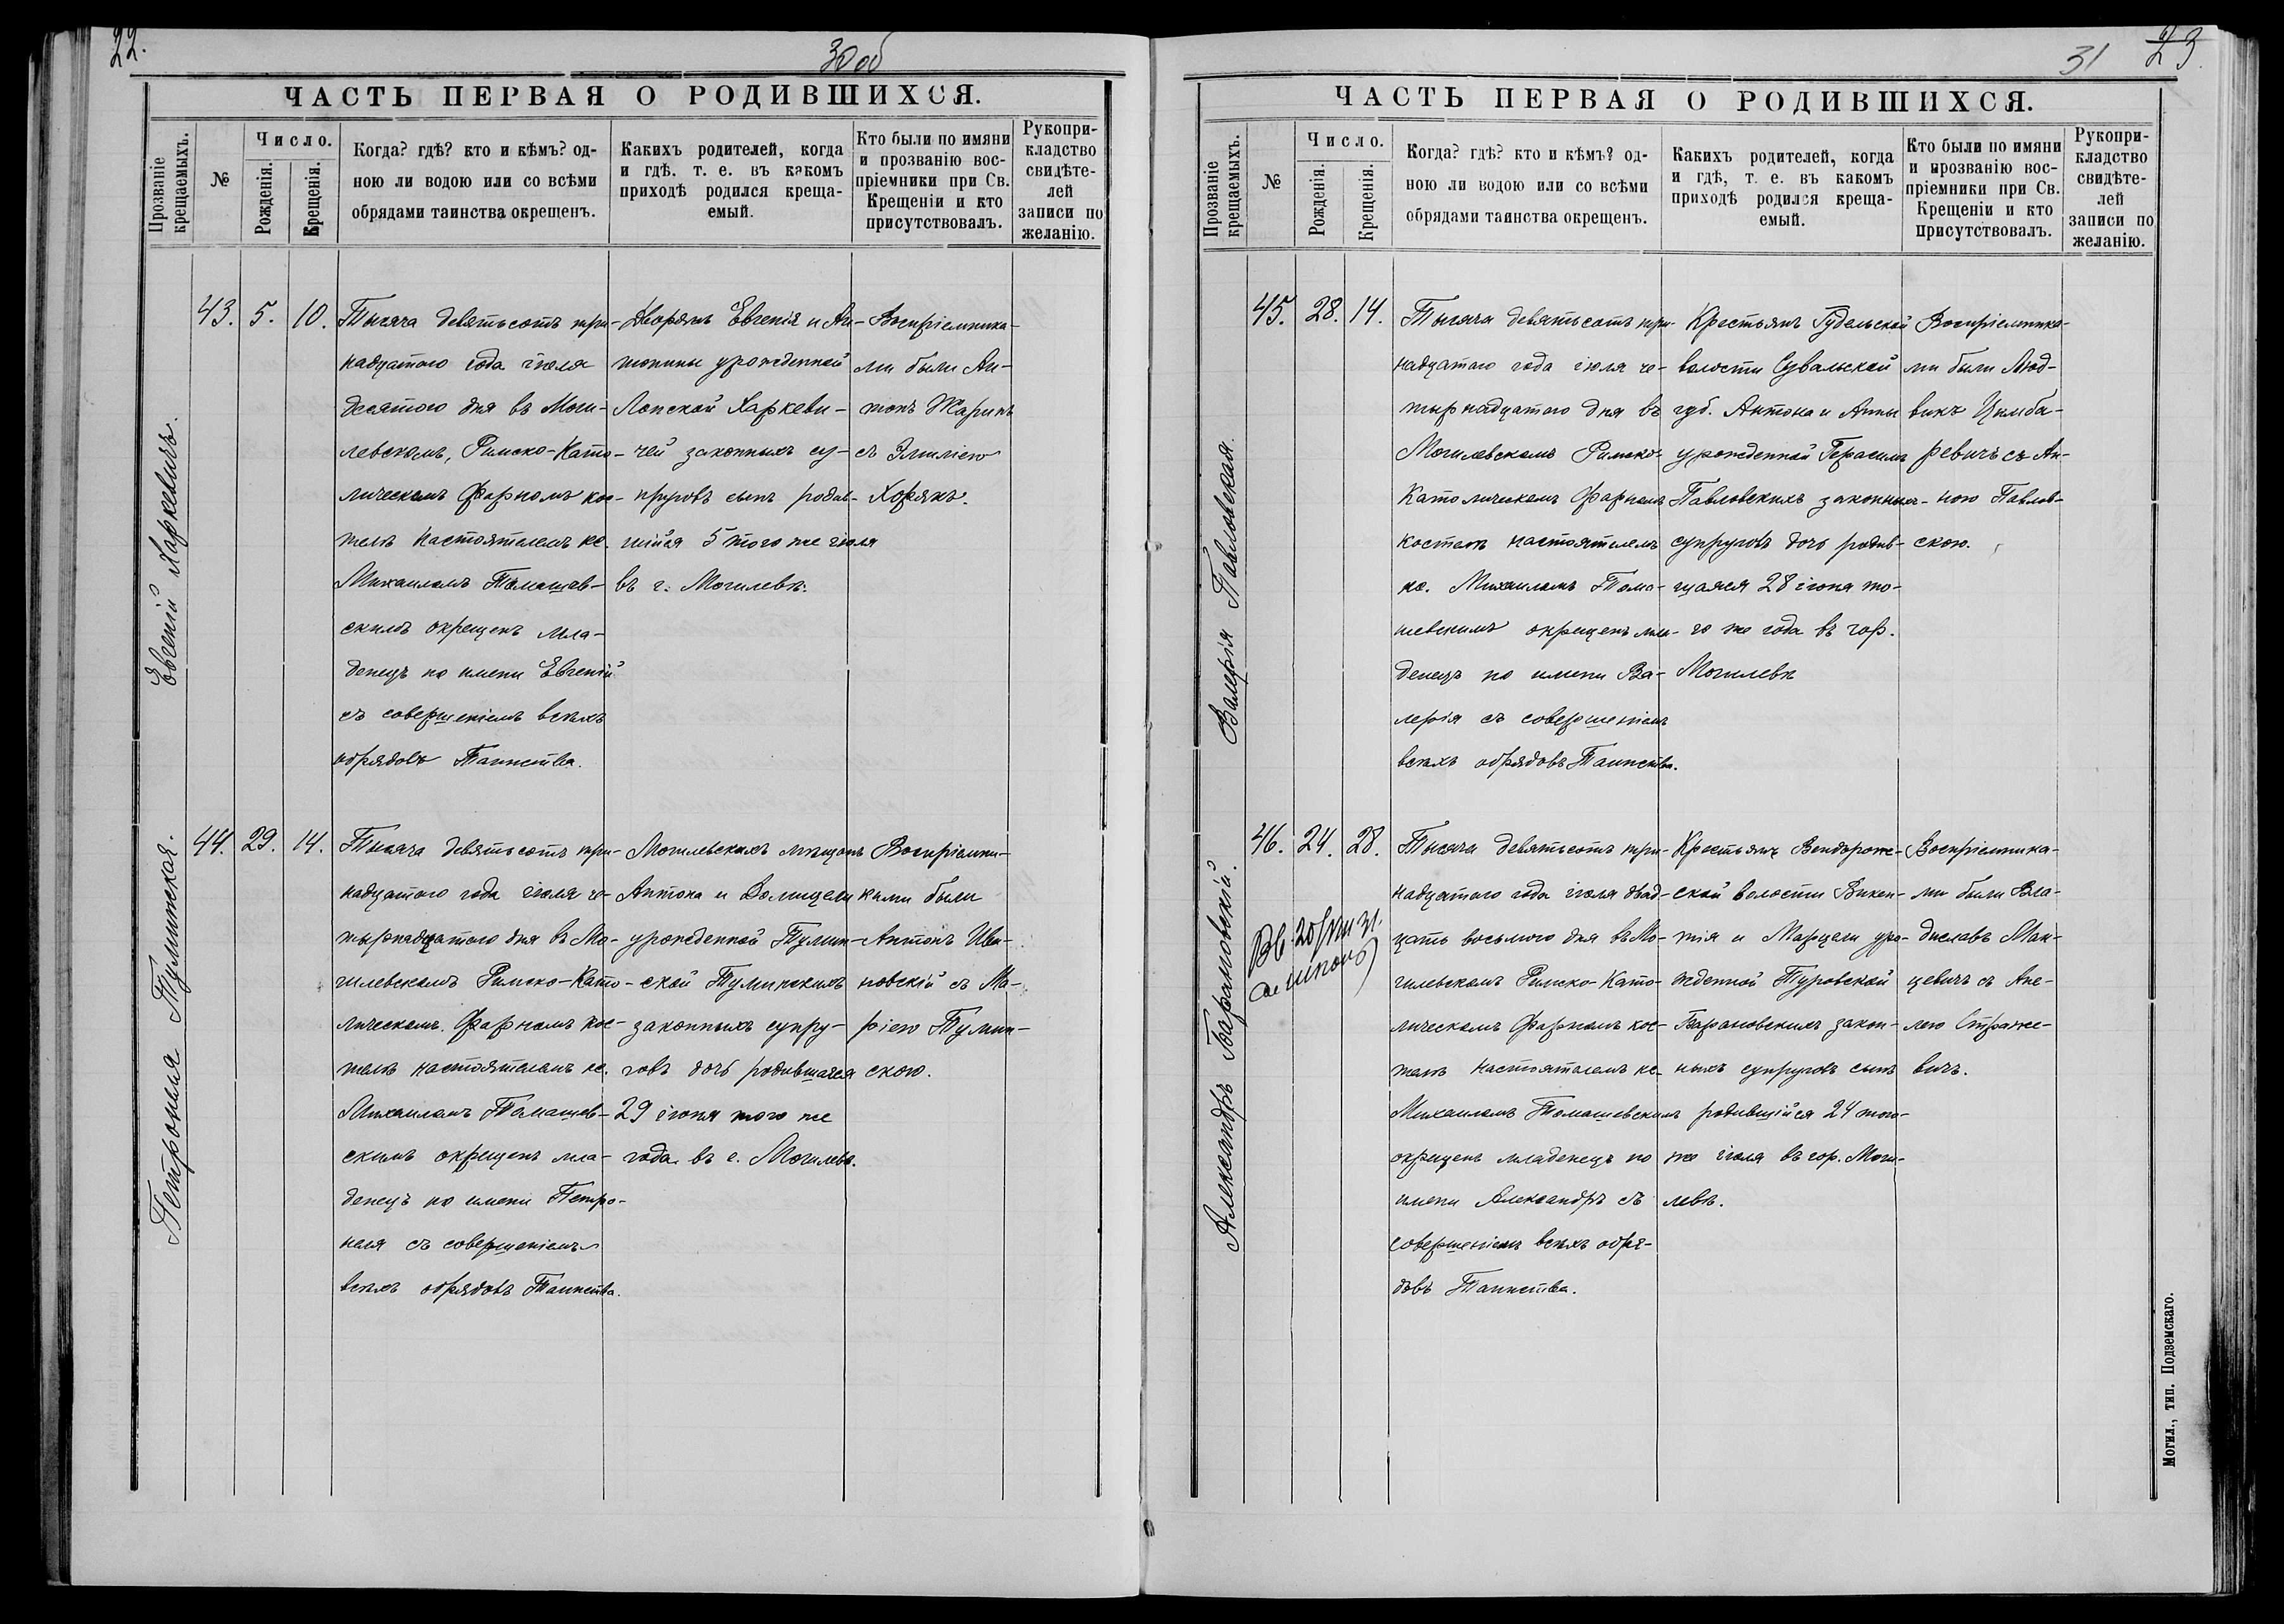 22.
30 об
ЧАСТЬ ПЕРВАЯ О РОДИВШИХСЯ.
Прозваніе крещаемыхъ.
№
Число.
Рожденія.
Крещенія.
Когда? гдѣ? кто и кѣмъ? од-
ною ли водою или со всѣми
обрядами таинства окрещенъ.
Какихъ родителей, когда
и гдѣ. т. е. въ какомъ
приходѣ родился креща-
емый.
Кто были по имяни
и прозванію вос-
пріемники при Св.
Крещеніи и кто
присутствовалъ.
Рукопри-
кладство
свидѣте-
лей
записи по
желанію.
Евгеній Харкевичъ.
43. 5. 10.
Тысяча девятьсотъ три-
надцатого года іюля
десятого дня въ Моги-
левскомъ, Римско-Като-
лическомъ Фарномъ кос-
телѣ настоятелемъ кс.
Михаиломъ Томашев-
скимъ окрещенъ мла-
денецъ по имени Евгеній
съ совершеніемъ всѣхъ
обрядовъ Таинства.
Дворянъ Евгенія и Ан-
тонины урожденной
Лопской Харкеви-
чей законныхъ су-
пруговъ сынъ родив-
шійся 5 того же іюля
въ г. Могилевѣ.
Воспріемника-
ми были Ан-
тонъ Жаринъ
съ Эмиліею
Хорякъ.
Петронеля Туминская.
44. 29. 14.
Тысяча девятьсотъ три-
надцатого года іюля че-
тырнадцатого дня въ Мо-
гилевскомъ Римско-Като-
лическомъ Фарномъ кос-
телѣ настоятелемъ кс.
Михаиломъ Томашев-
скимъ окрещенъ мла-
денецъ по имени Петро-
неля съ совершеніемъ
всѣхъ обрядовъ Таинства.
Могилевскихъ мѣщанъ
Антона и Домицели
урожденной Тумин-
ской Туминскихъ
законныхъ супру-
говъ дочь родившаяся
29 іюня того же
года въ г. Могилевѣ.
Воспріемни-
ками были
Антонъ Ива-
новскій съ Ма-
ріею Тумин-
скою.
31
23.
ЧАСТЬ ПЕРВАЯ О РОДИВШИХСЯ.
Прозваніе крещаемыхъ.
№
Число.
Рожденія.
Крещенія.
Когда? гдѣ? кто и кѣмъ? од-
ною ли водою или со всѣми
обрядами таинства окрещенъ.
Какихъ родителей, когда
и гдѣ, т. е. въ какомъ
приходѣ родился креща-
емый.
Кто были по имяни
и прозванію вос-
пріемники при Св.
Крещеніи и кто
присутствовалъ.
Рукопри-
кладство
свидѣте-
лей
записи по
желанію.
Валерія Павловская.
45. 28. 14.
Тысяча девятьсотъ три-
надцатого года іюля че-
тырнадцатого дня въ
Могилевскомъ Римско-
Католическомъ Фарномъ
костелѣ настоятелемъ
кс. Михаиломъ Тома-
шевскимъ окрещенъ мла-
денецъ по имени Ва-
лерія съ совершеніемъ
всѣхъ обрядовъ Таинства.
Крестьянъ Гудельской
волости Сувальской
губ. Антона и Анны
урожденной Герасимъ
Павловскихъ законныхъ
супруговъ дочь родив-
шаяся 28 іюня то-
го же года въ гор.
Могилевѣ
Воспріемника-
ми были Люд-
викъ Цимба-
ревичъ съ Ан-
ною Павлов-
скою.
Александръ Барановскій.
46. 24. 28.
Тысяча девятьсотъ три-
надцатого года іюля двад-
цать восьмого дня въ Мо-
гилевскомъ Римско-Като-
лическомъ Фарномъ кос-
телѣ настоятелемъ кс.
Михаиломъ Томашевскимъ
окрещенъ младенецъ по
имени Александръ съ
совершеніемъ всѣхъ обря-
довъ Таинства.
Крестьянъ Вендороже-
ской волости Викен-
тія и Марцели уро-
жденной Туровской
Барановскихъ закон-
ныхъ супруговъ сынъ
родившійся 24 того-
же іюля въ гор. Моги-
левѣ.
Воспріемника-
ми были Вла-
диславъ Ман-
цевичъ съ Ане-
лею Страже-
вичъ.
Могил., тип. Подземскаго.